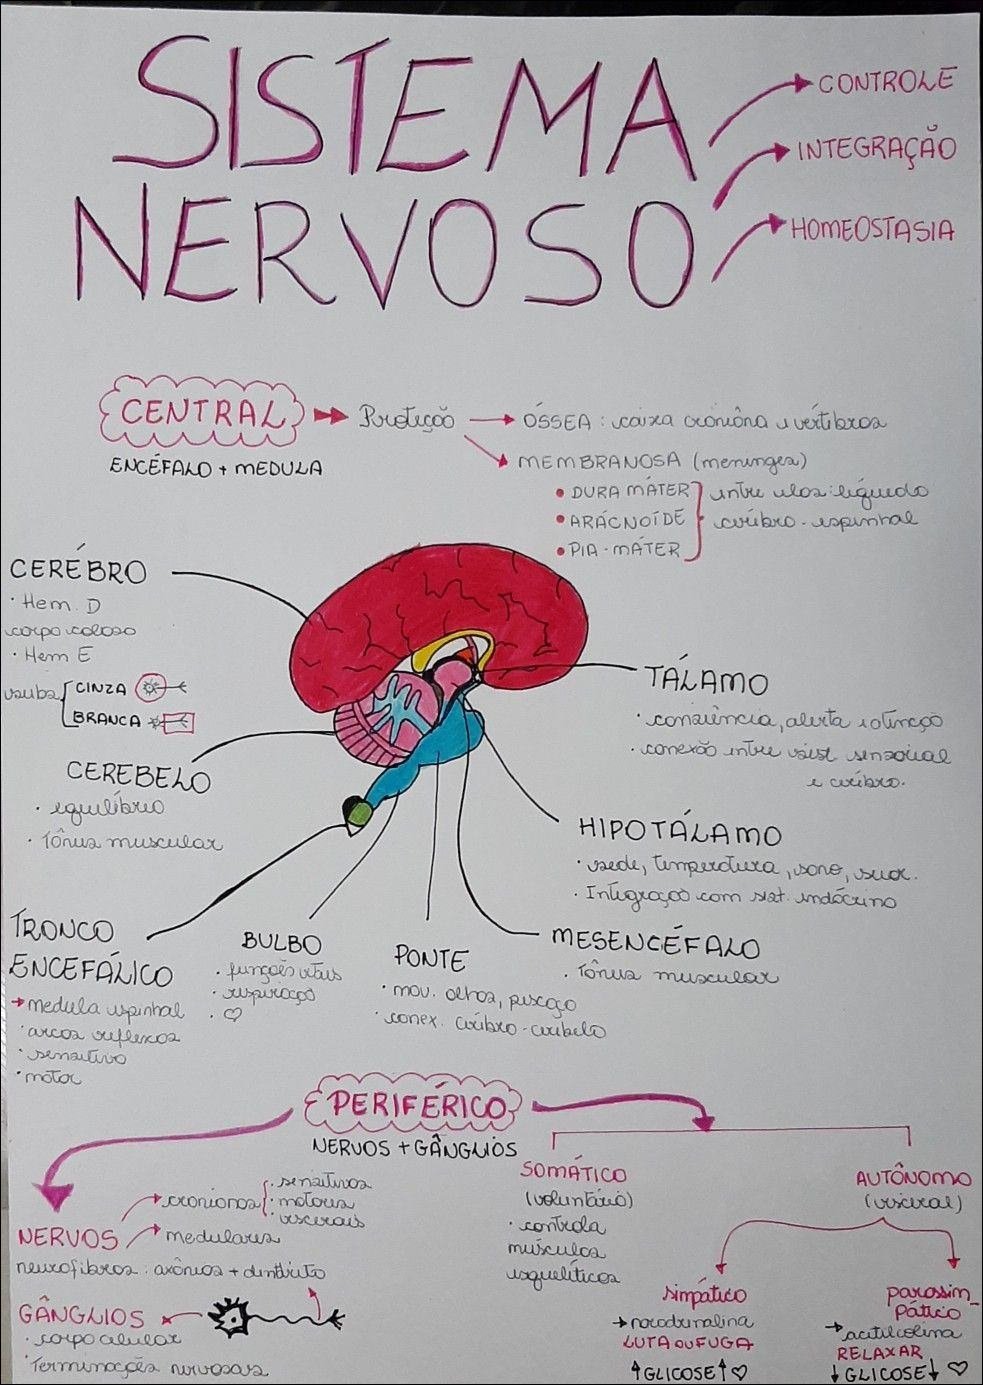 SISTEMA
NERVOSO
CONTROLE
INTEGRAÇÃO
HOMEOSTASIA
CENTRAL
ENCÉFALO + MEDULA
Proteção
ÓSSEA : caixa craniana e vértebras
MEMBRANOSA (meninges)
• DURA MÁTER
• ARÁCNOÍDE
• PIA-MÁTER
entre elas: líquido
cérebro-espinhal
CERÉBRO
• Hem. D
corpo caloso
• Hem E
CINZA
BRANCA
CEREBELO
• equilíbrio
• Tônus muscular
TÁLAMO
• consciência, alerta e atenção
• conexão entre
sensorial
e cérebro.
HIPOTÁLAMO
• sede, temperatura, sono, suor.
• Integração com sist. endócrino
MESENCÉFALO
• Tônus muscular
TRONCO
ENCEFÁLICO
→ medula espinhal
• arcos reflexos
• sensitivo
• motor
BULBO
• funções vitais
• respiração
• ♡
PONTE
• mov. olhos, pescoço
• conex. cérebro-cerebelo
PERIFÉRICO
NERVOS + GÂNGLIOS
NERVOS
cranianos
• sensitivos
• motores
• viscerais
medulares
neurofibras : axônios + dendrito
GÂNGLIOS
• corpo celular
• Terminações nervosas
SOMÁTICO
(voluntário)
• controla
músculos
esqueléticos
AUTÔNOMO
(visceral)
simpático
→ noradrenalina
LUTA OU FUGA
↑GLICOSE↑♡
parassim_
pático
→ acetilcolina
RELAXAR
↓GLICOSE↓♡